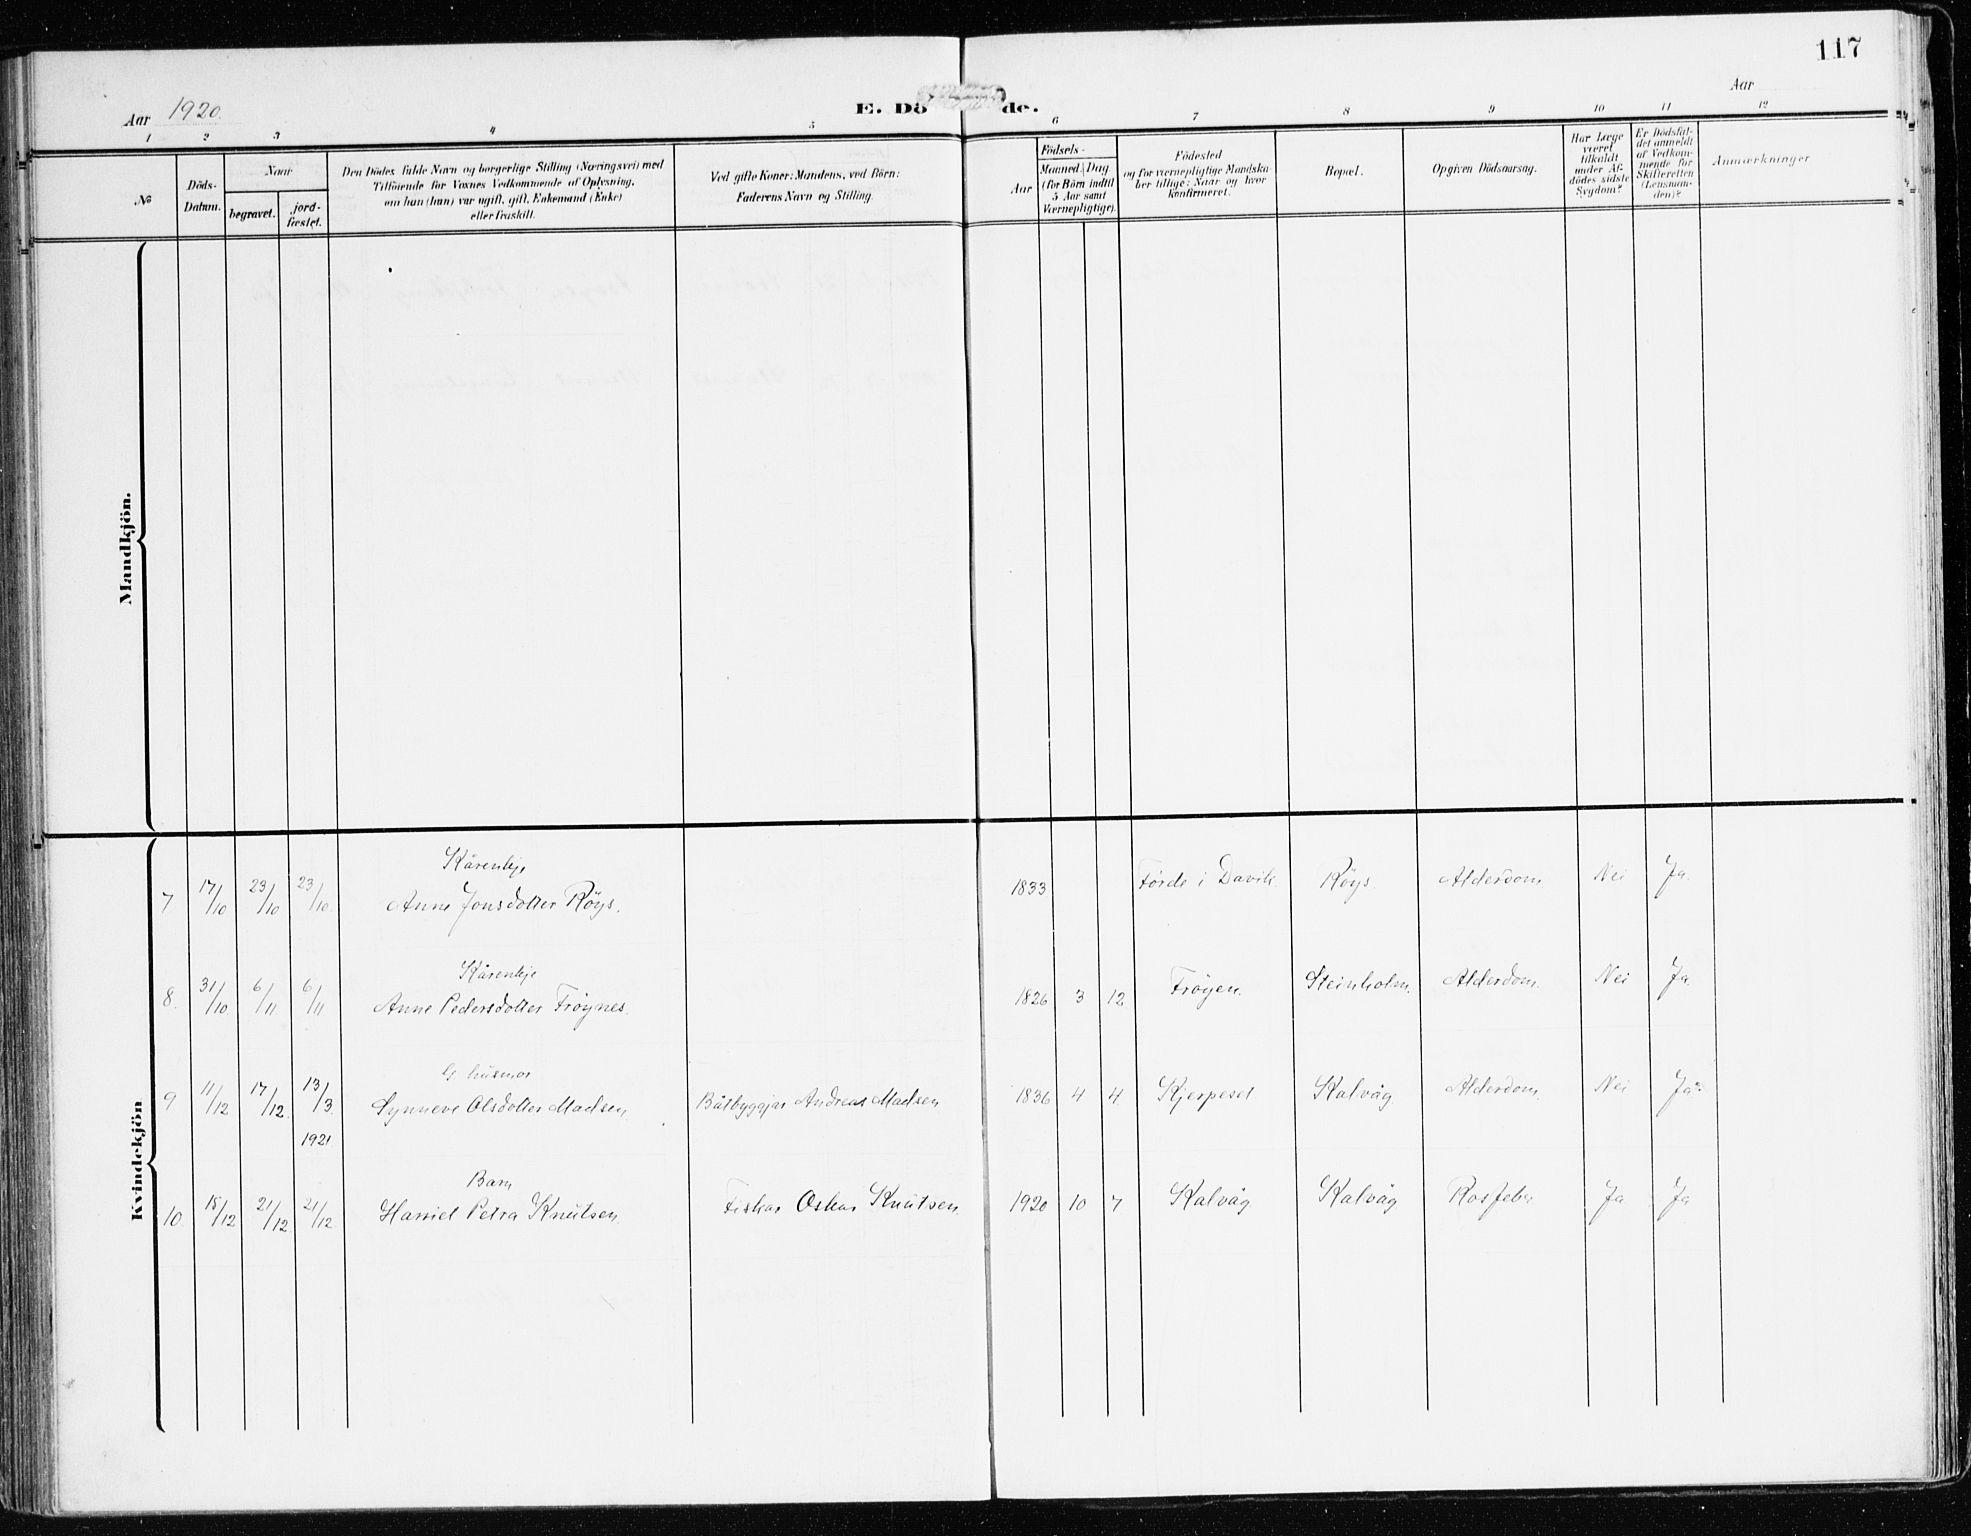 117
Aar 1920.
E. Dö de.
Aar
1 2 3 4 5 6 7 8 9 10 11 12
№
Döds-
Datum.
Naar
begravet.
jord-
fæstet.
Den Dödes fulde Navn og borgerlige Stilling (Næringsvei) med
Tilföiende for Voxnes Vedkommende af Oplysning,
om han (hun) var ugift, gift, Enkemand (Enke)
eller fraskilt.
Ved gifte Koner: Mandens, ved Börn:
Faderens Navn og Stilling.
Födsels-
Aar
Maaned. Dag
(for Börn indtil
5 Aar samt
Værnepligtige).
Födested
og for værnepligtige Mandska-
ber tillige: Naar og hvor
konfirmeret.
Bopæl.
Opgiven Dödsaarsag.
Har Læge
været
tilkaldt
under Af-
dödes sidste
Sygdom?
Er Dödsfal-
det anmeldt
af Vedkom-
mende for
Skifteretten
(Lensman-
den)?
Anmærkninger
Mandkjön.
Kvindekjön
Kårenkje
7 17/10 23/10 23/10 Anne Jonsdotter Röys. 1833 Förde i Davik. Röys. Alderdom Nei Ja.
Kårenkje
8. 31/10 6/11 6/11 Anne Pedersdotter Fröynes. 1826 3 12 Fröyen. Steinholm. Alderdom. Nei Ja.
G. husmor
9 11/12 17/12. 13/3. Synneve Olsdotter Madsen. Båtbyggjar Andreas Madsen 1836 4 4 Kjerpeset Kalvåg. Alderdom. Nei Ja.
1921
Barn
10. 15/12 21/12 21/12 Harriet Petra Knutsen. Fiskar Oskar Knutsen 1920 10 7 Kalvåg. Kalvåg Rosfeber Ja Ja